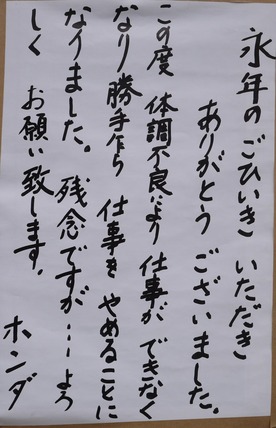 永年のごひいき いただき
ありがとう ございました。
この度 体調不良により 仕事が できなく
なり 勝手乍ら 仕事を やめることに
なりました。 残念ですが… よろ
しく お願い致します。
ホンダ